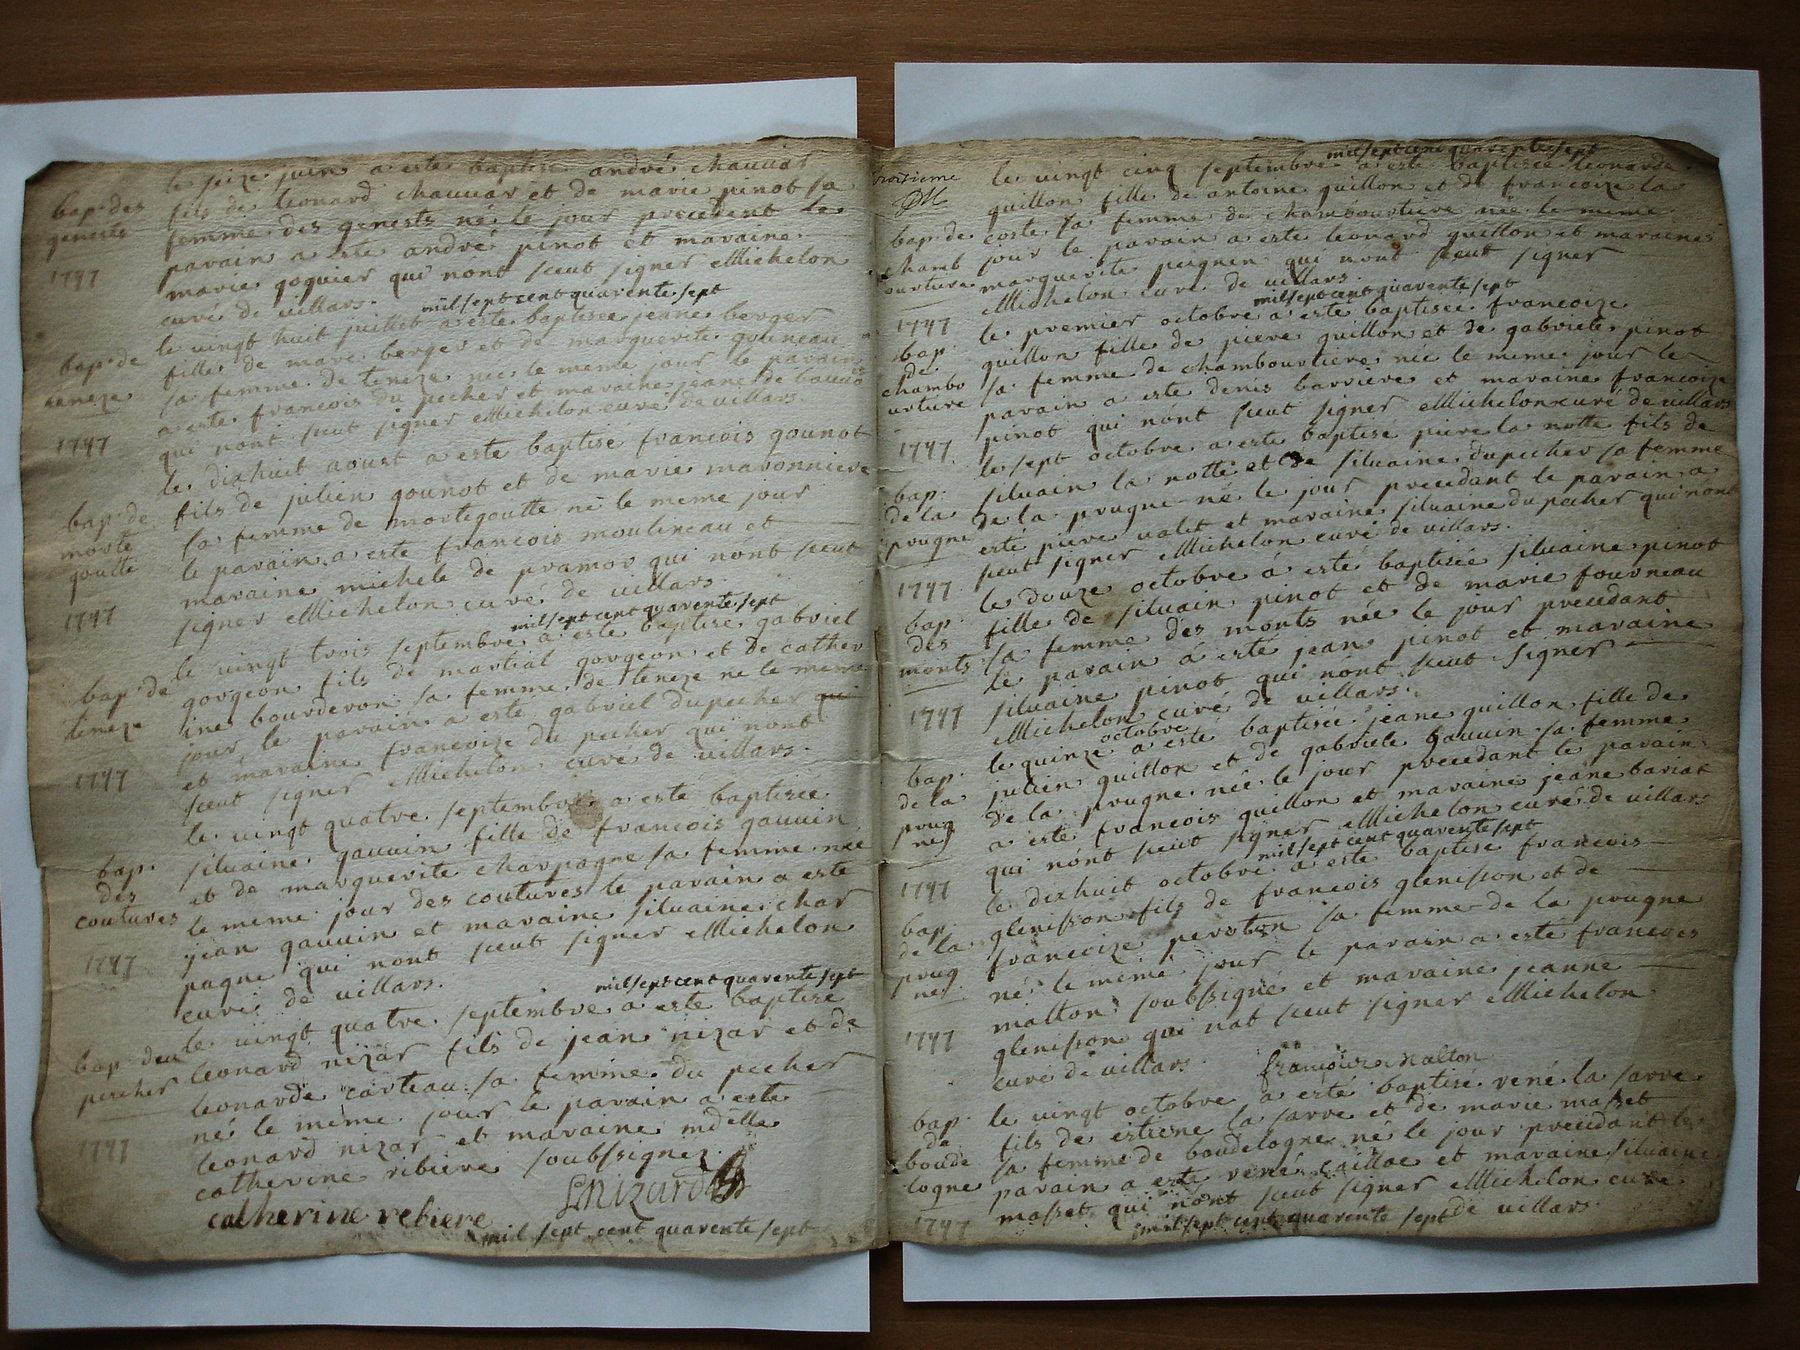 le seize juin a este baptise andré chauvat
bap. des
genests
1747
fils de leonard chauvat et de marie pinot sa
femme des genests né le jour precedent le
parain a este andré pinot et maraine
marie goguier qui nont sceut signer Michelon
curé de villars.
mil sept cent quarente sept
le vingt huit juillet a este baptisée jeane berger
bap. de
teneze
1747
fille de marc berger et de marguerite gouneau
sa femme de teneze née le meme jour le parain
a este francois du pecher et maraine jeane de
qui nont sceut signer Michelon curé de villars.
le dixhuit aoust a este baptise francois gounot
bap. de
morte
goutte
1747
fils de julien gounot et de marie maronniere
sa femme de mortegoutte né le meme jour
le parain a este francois moulineau et
maraine michele de pramor qui nont sceut
signer Michelon curé de villars.
mil sept cent quarente sept
le vingt trois septembre a este baptise gabriel
bap. de
teneze
1747
gorgeon fils de martial gorgeon et de cather
ine bourderon sa femme de teneze né le meme
jour le parain a este gabriel dupecher qui
et maraine francoize du pecher qui nont
sceut signer Michelon curé de villars.
le vingt quatre septembre a este baptisée
bap.
des
coutures
1747
silvaine gauvin fille de francois gauvin
et de marguerite charpagne sa femme née
le meme jour des coutures le parain a este
jean gauvin et maraine silvaine char
pagne qui nont sceut signer Michelon
curé de villars.
mil sept cent quarente sept
le vingt quatre septembre a este baptise
bap. deu
percher
1747
leonard nizar fils de jean nizar et de
leonarde carteau sa femme du pecher
né le meme jour le parain a este
leonard nizar et maraine mdelle
catherine ribiere soubssignez.
LNizard
catherine rebiere
mil sept cent quarente sept
troisieme
mil sept cent quarente sept
le vingt cinq septembre a este baptisée leonarde
bap. de
chamb
ourture
1747
guillon fille de antoine guillon et de francoize la
coste sa femme de chambourture née le meme
jour le parain a este leonard guillon et maraine
marguerite peignin qui nont sceut signer
Michelon curé de villars.
mil sept cent quarente sept
le premier octobre a este baptisée francoize
bap.
de
chambo
urture
1747
guillon fille de piere guillon et de gabriele pinot
sa femme de chambourtiere née le meme jour le
parain a este denis barriere et maraine francoize
pinot qui nont sceut signer Michelon curé de villars
le sept octobre a este baptisé piere la notte fils de
bap.
de la
prugne
1747
silvain la notte et de silvaine dupecher sa femme
de la prugne né le jour precedant le parain a
esté piere valet et maraine silvaine du pecher qui nont
sceut signer Michelon curé de villars.
le douze octobre a esté baptisée silvaine pinot
bap.
des
monts
1747
fille de silvain pinot et de marie fourneau
sa femme des monts née le jour precedant
le parain a esté jean pinot et maraine
silvaine pinot qui nont sceut signer
Michelon curé de villars.
octobre
le quinze a este baptisée jeane guillon fille de
bap.
de la
prug
nes
1747
julien guillon et de gabriele gauvin sa femme
de la prugne née le jour precedant le parain
a este francois guillon et maraine jeane bariat
qui nont sceut signer Michelon curé de villars
mil sept cent quarente sept
le dixhuit octobre a este baptise francois
bap.
de la
prug
nes
1747
glenisson fils de francois glenisson et de
francoize peroten sa femme de la prugne
né le meme jour le parain a esté francois
malton soubssigné et maraine jeanne
glenisson qui nat sceut signer Michelon
curé de villars.
françoire nalton
le vingt octobre a esté baptisé rené la sarre
bap.
de
boude
logne
1747
fils de estiene la sarre et de marie masset
sa femme de boudelogne né le jour precedant le
parain a este rené caillac et maraine silvaine
masset qui nont sceut signer Michelon curé
de villars
mil sept cent quarente sept